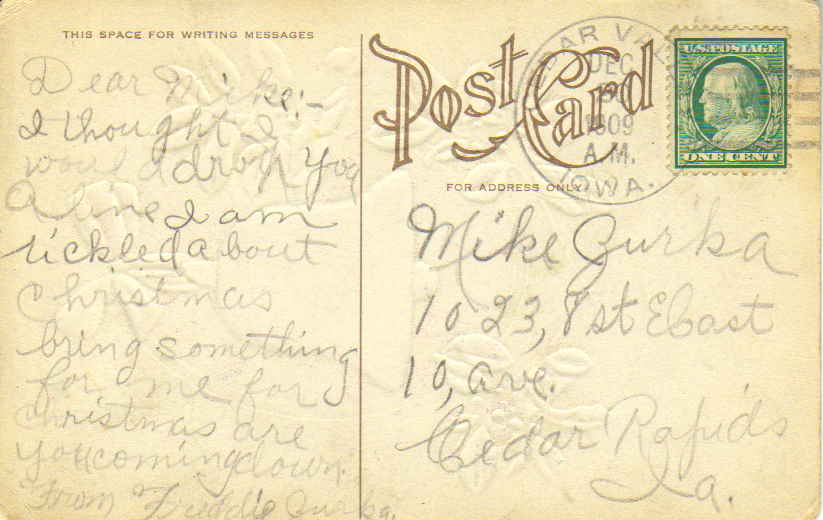 THIS SPACE FOR WRITING MESSAGES
Dear Mike:-
I thought I
would drop you
a line I am
tickled about
christmas
bring something
for me for
christmas are
you coming down
From Freddie Zurka.
Post Card
FOR ADDRESS ONLY
DEC
1909
A.M.
IOWA.
U.S. POSTAGE
ONE CENT
Mike Zurka
1023, 1st East
10, ave.
Cedar Rapids
Ia.